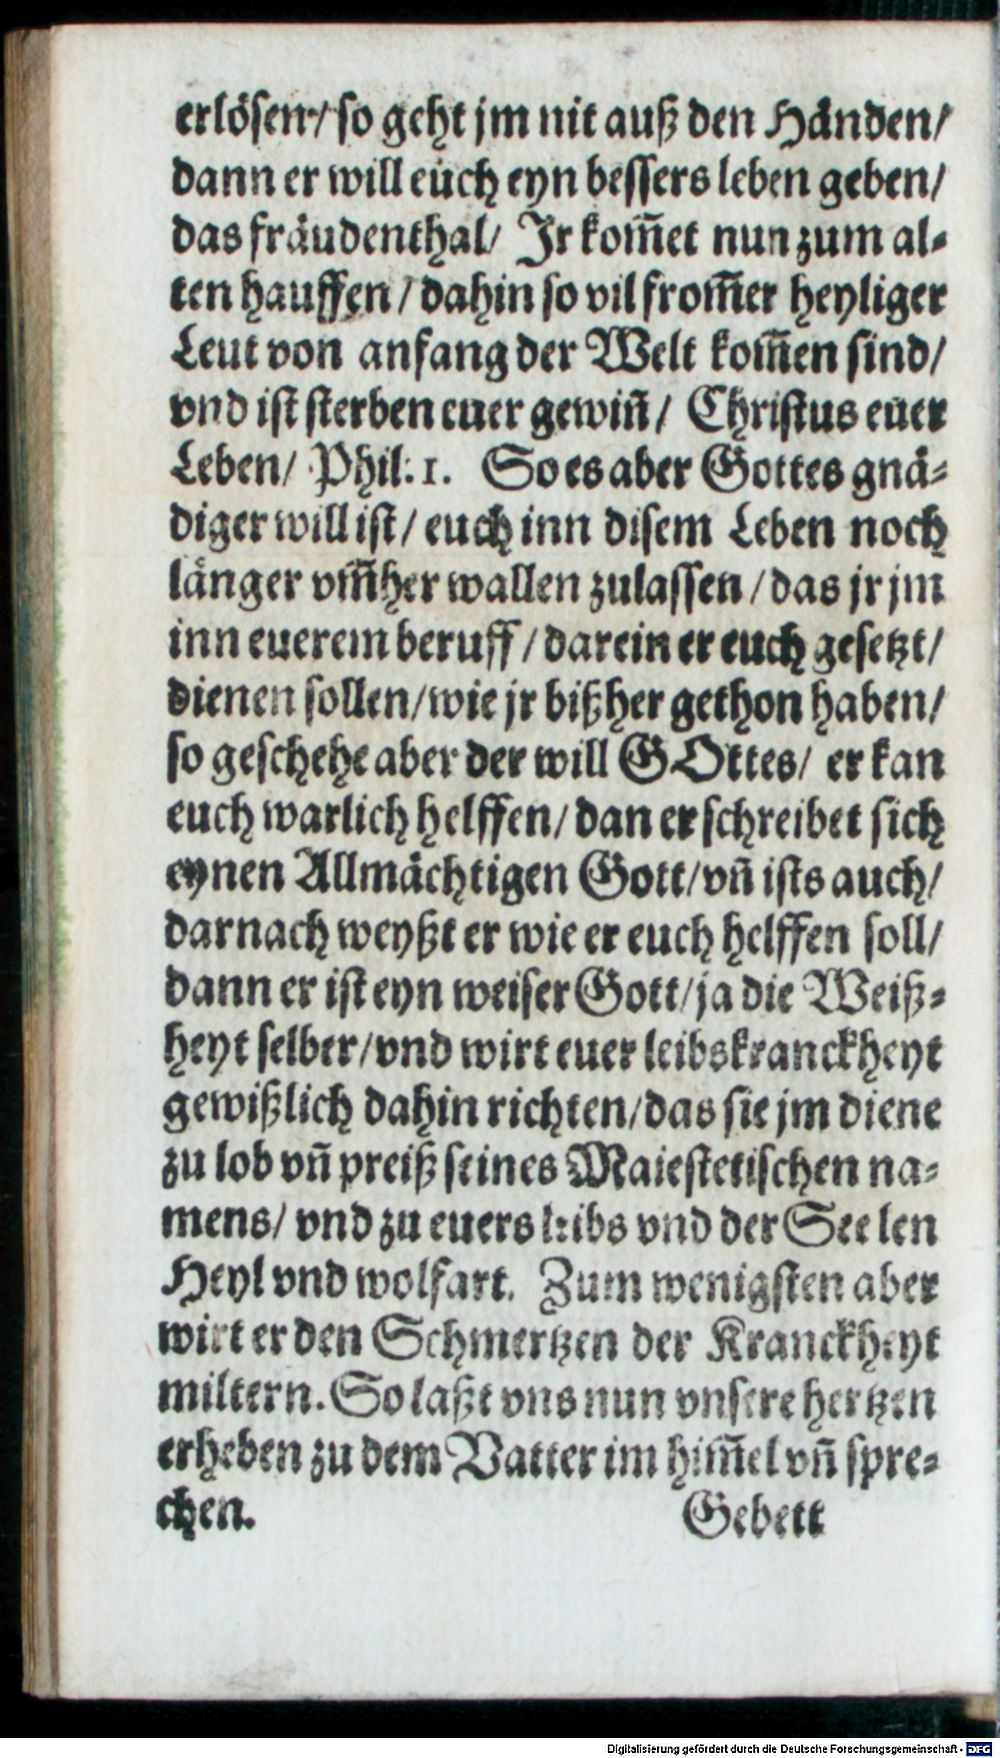 erlösen / so geht jm nit auß den Händen /
dann er will euch eyn bessers leben geben /
das fräudenthal / Jr kom̅et nun zum al⸗
ten hauffen / dahin so vil from̅er heyliger
Leut von anfang der Welt kom̅en sind /
vnd ist sterben euer gewin̅ / Christus euer
Leben / Phil. 1. So es aber Gottes gnä⸗
diger will ist / euch inn disem Leben noch
länger vm̅her wallen zulassen / das jr jm
inn euerem beruff / darein er euch gesetzt /
dienen sollen / wie jr bißher gethon haben /
so geschehe aber der will GOttes / er kan
euch warlich helffen / dan er schreibet sich
eynen Allmächtigen Gott / vn̅ ists auch /
darnach weyßt er wie er euch helffen soll /
dann er ist eyn weiser Gott / ja die Weiß⸗
heyt selber / vnd wirt euer leibskranckheyt
gewißlich dahin richten / das sie jm diene
zu lob vn̅ preiß seines Maiestetischen na⸗
mens / vnd zu euers leibs vnd der Seelen
Heyl vnd wolfart. Zum wenigsten aber
wirt er den Schmertzen der Kranckheyt
miltern. So laßt vns nun vnsere hertzen
erheben zu dem Vatter im him̅el vn̅ spre⸗
chen. Gebett
Digitalisierung gefördert durch die Deutsche Forschungsgemeinschaft - DFG